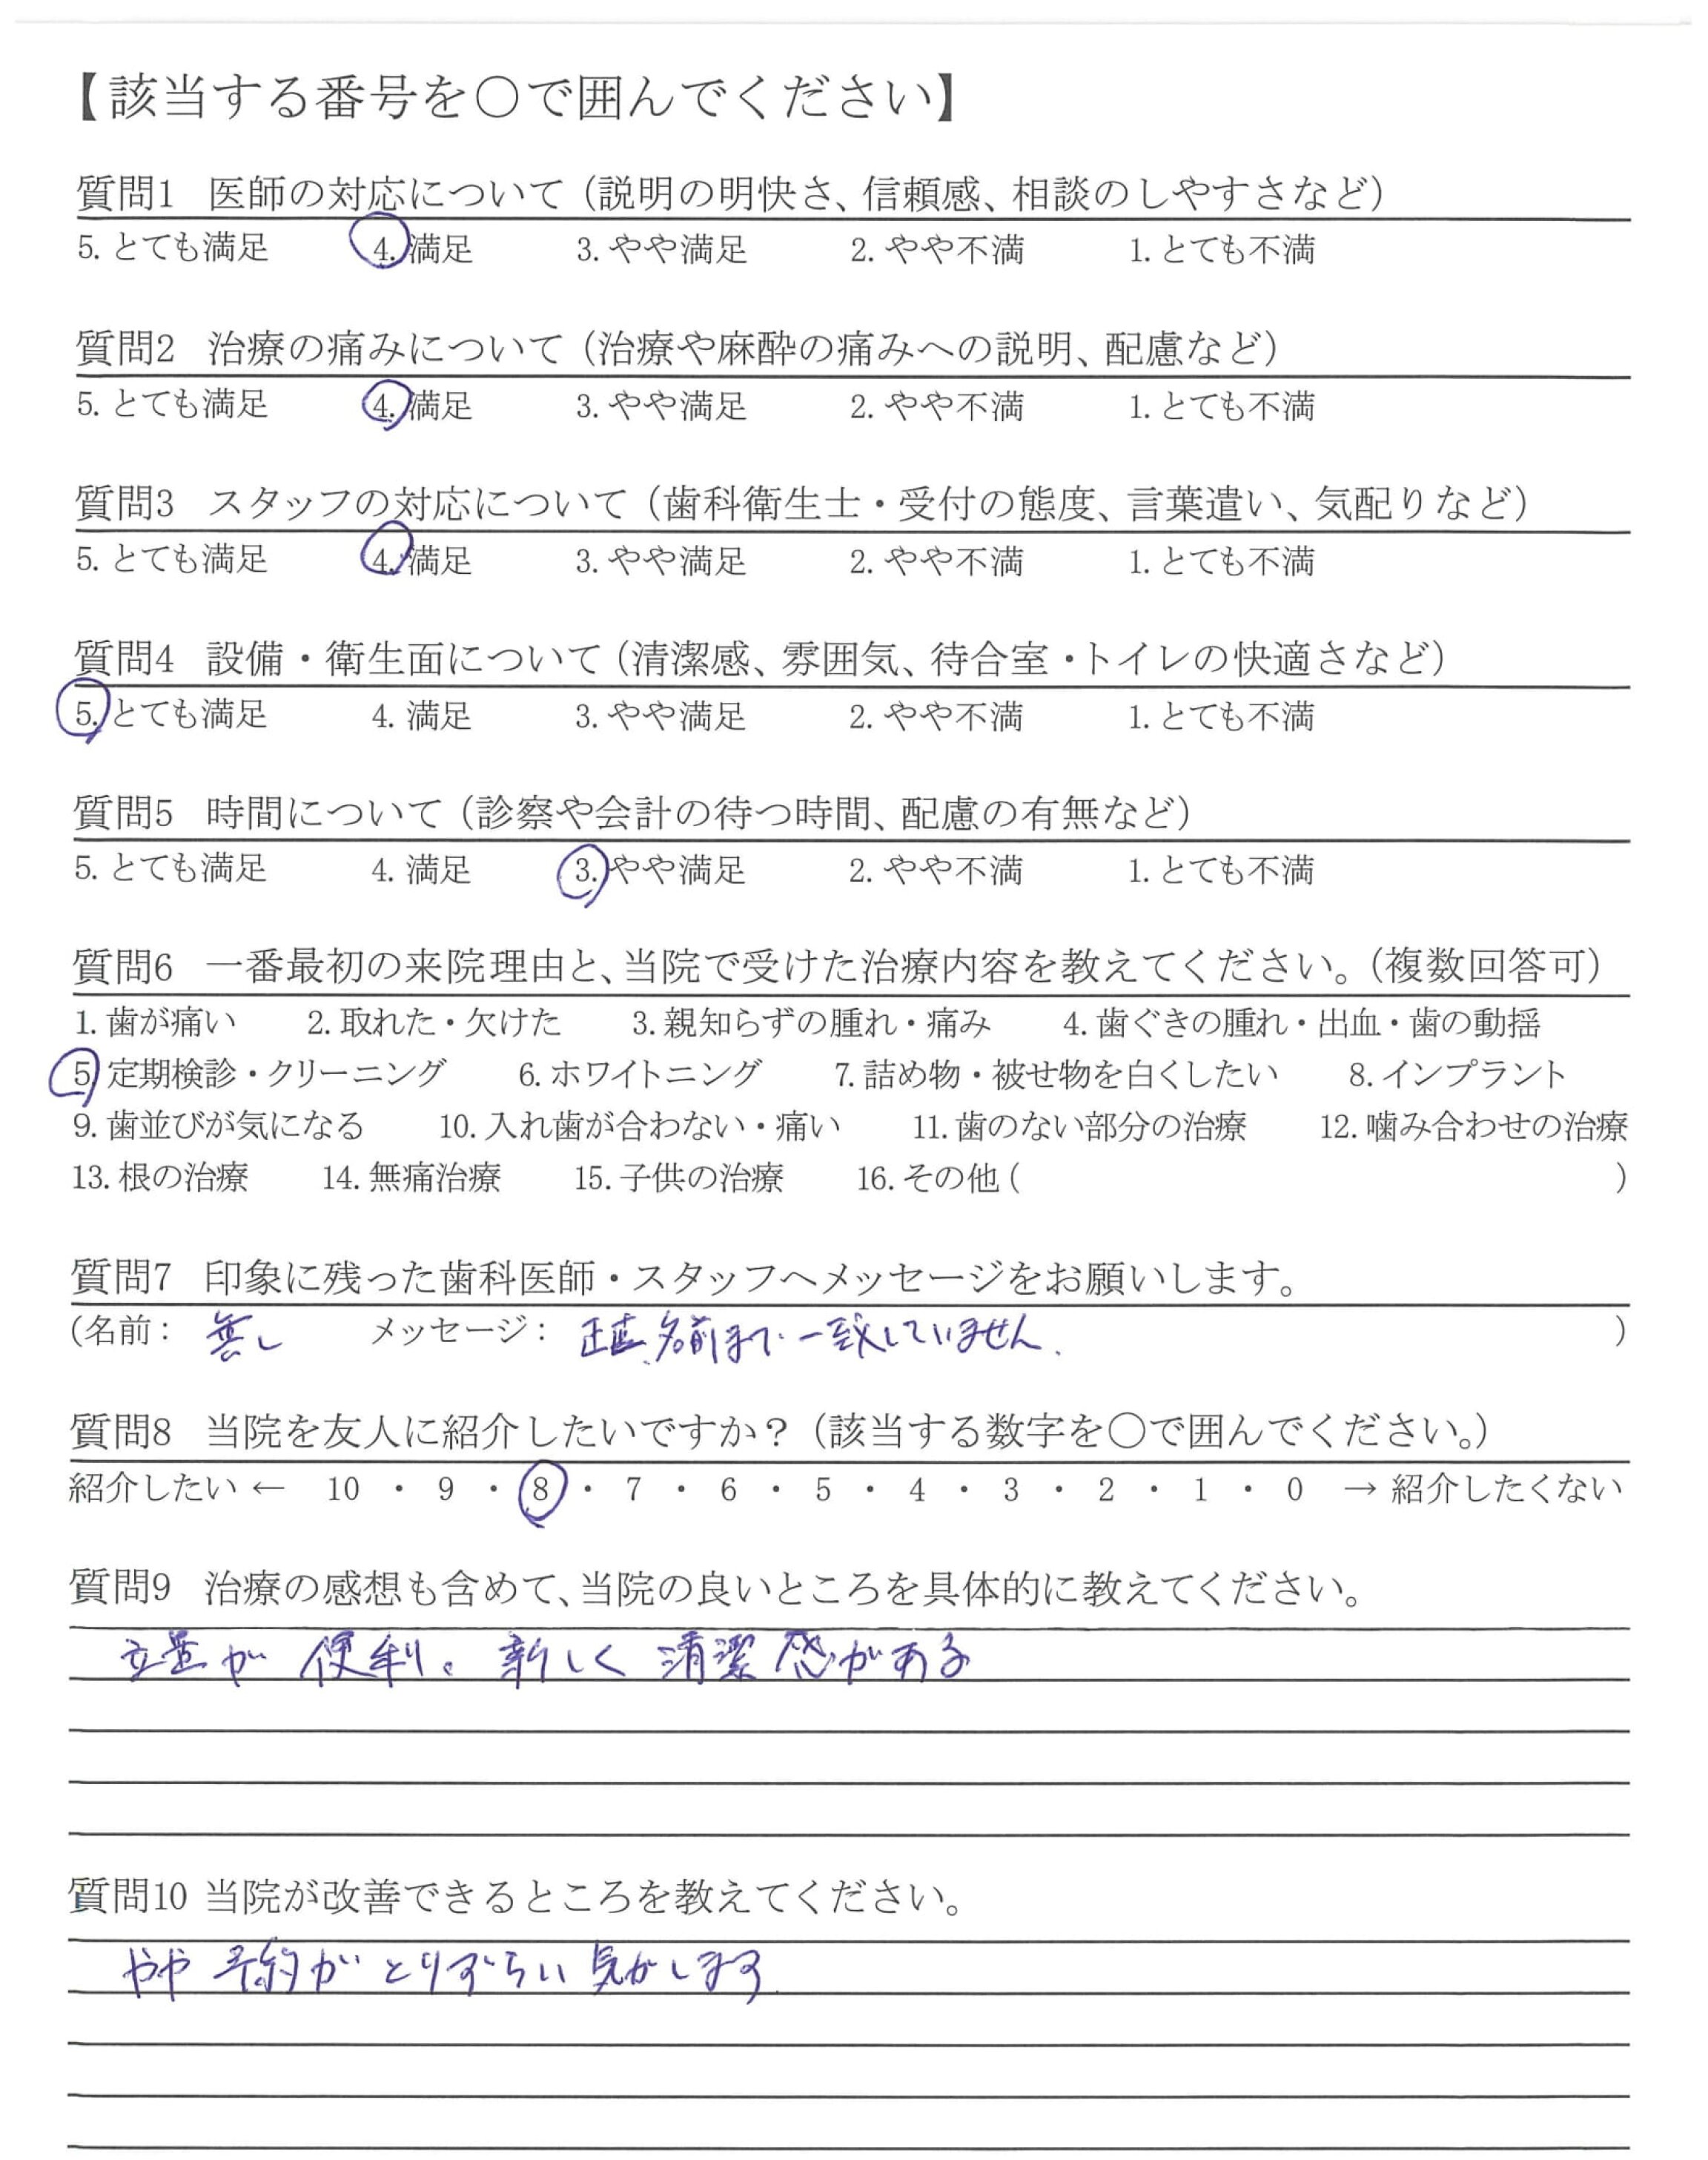 【該当する番号を○で囲んでください】
質問1 医師の対応について（説明の明快さ、信頼感、相談のしやすさなど）
5. とても満足 4. 満足 3. やや満足 2. やや不満 1. とても不満
質問2 治療の痛みについて（治療や麻酔の痛みへの説明、配慮など）
5. とても満足 4. 満足 3. やや満足 2. やや不満 1. とても不満
質問3 スタッフの対応について（歯科衛生士・受付の態度、言葉遣い、気配りなど）
5. とても満足 4. 満足 3. やや満足 2. やや不満 1. とても不満
質問4 設備・衛生面について（清潔感、雰囲気、待合室・トイレの快適さなど）
5. とても満足 4. 満足 3. やや満足 2. やや不満 1. とても不満
質問5 時間について（診察や会計の待つ時間、配慮の有無など）
5. とても満足 4. 満足 3. やや満足 2. やや不満 1. とても不満
質問6 一番最初の来院理由と、当院で受けた治療内容を教えてください。（複数回答可）
1. 歯が痛い 2. 取れた・欠けた 3. 親知らずの腫れ・痛み 4. 歯ぐきの腫れ・出血・歯の動揺
5. 定期検診・クリーニング 6. ホワイトニング 7. 詰め物・被せ物を白くしたい 8. インプラント
9. 歯並びが気になる 10. 入れ歯が合わない・痛い 11. 歯のない部分の治療 12. 噛み合わせの治療
13. 根の治療 14. 無痛治療 15. 子供の治療 16. その他（ ）
質問7 印象に残った歯科医師・スタッフへメッセージをお願いします。
（名前： 無し メッセージ： 正直、名前まで一致していません。 ）
質問8 当院を友人に紹介したいですか？（該当する数字を○で囲んでください。）
紹介したい ← 10 ・ 9 ・ 8 ・ 7 ・ 6 ・ 5 ・ 4 ・ 3 ・ 2 ・ 1 ・ 0 → 紹介したくない
質問9 治療の感想も含めて、当院の良いところを具体的に教えてください。
立置が 便利。新しく 清潔感がある
質問10 当院が改善できるところを教えてください。
やや 予約が とりずらい 気がします